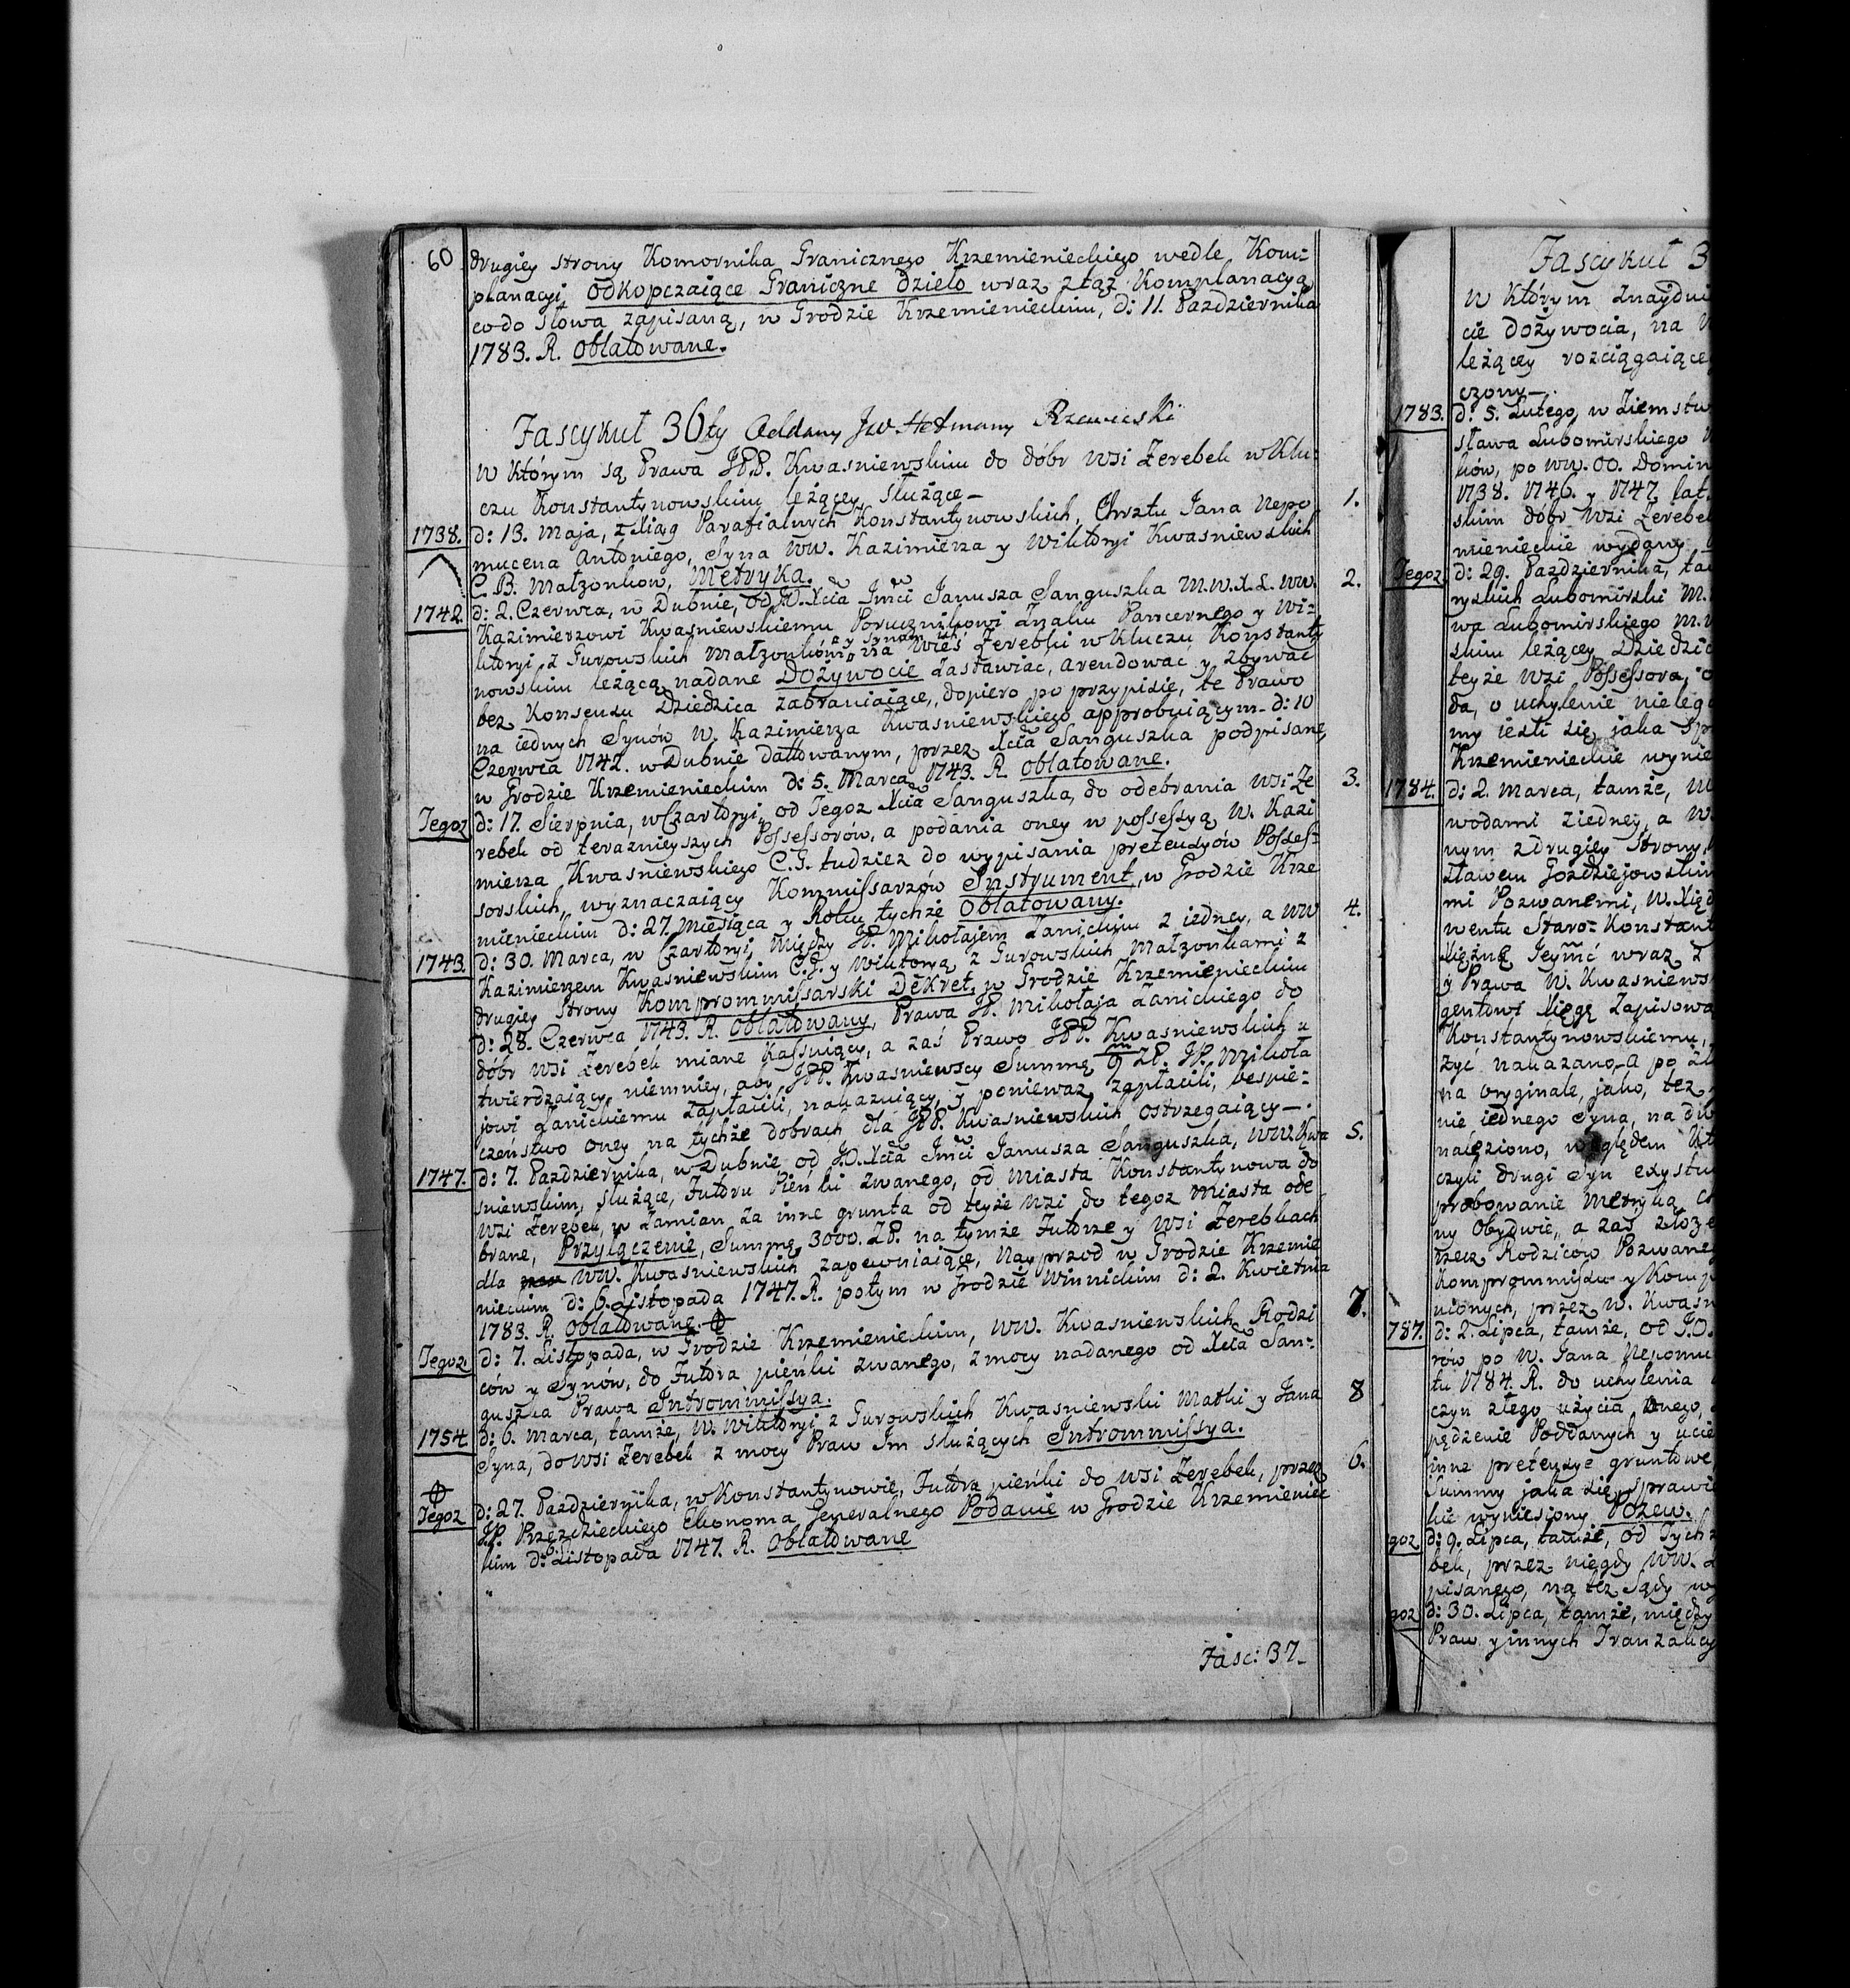 60
drugiey strony Komornika Granicznego Krzemienieckiego wedle Kom=
planacyi, odkopczaiące Graniczne dzieło wraz z tąż Komplanacyą
co do słowa zapisaną, w Grodzie Krzemienieckim, d: 11. Pazdziernika
1783. R. oblatowane.
Fascykuł 36ty Oddany Jw. Hetmany Rzewuski
w którym są Prawa JPP. Kwasniewskim do dóbr wsi Zerebek w Klu=
czu Konstantynowskim leżącey, służące —
1738. d: 13. Maja, z Xiąg Parafialnych Konstantynowskich, Chrztu Jana Nepo 1.
mucena Antoniego, Syna WW. Kazimierza y Wiktoryi Kwasniewskich
C. B. Małzonków, Metryka.
1742. d: 2. Czerwca, w Dubnie, od J.O. Xcia Jmci Janusza Sanguszka M.W.X.L. WW. 2.
Kazimierzowi Kwasniewskiemu Porucznikowi Znaku Pancernego y Wi=
ktoryi z Gurowskich Małzonkóm, y Synom ich na Wieś Zerebki w Kluczu Konstanty
nowskim leżącą nadane Dożywocie Zastawiac, arendować y zbywać
bez Konsensu Dziedzica zabraniaiące, dopiero po przypisie, te Prawo
na iednych Synow W. Kazimierza Kwasniewskiego approbuiącym d: 10
Czerwca 1742. w Dubnie datowanym, przez Xcia Sanguszka podpisane,
w Grodzie Krzemienieckim d: 5. Marca 1743. R. oblatowane.
Tegoz d: 17. Sierpnia, w Czartoryi, od Tegoz Xcia Sanguszka, do odebrania wsi Ze 3.
rebek od terazniejszych Possessorów, a podania oney w possessyą W. Kazi
mierza Kwasniewskiego C.G. tudziez do wypisania pretensyów Posses=
sorskich, wyznaczaiący Kommissarzów Instrument, w Grodzie Krze
mienieckim d: 27. Miesiąca y Roku tychże Oblatowany.
1743. d: 30. Marca, w Czartoryi, między JP. Mikołajem Zanickim z iedney, a WW 4.
Kazimierzem Kwasniewskim C.G. y Wiktoryą z Gurowskich Małzonkami z
drugiey Strony Kompromissarski Dekret, w Grodzie Krzemienieckim
d: 28. Czerwca 1743. R. oblatowany, Prawa JP. Mikołaja Zanickiego do
dóbr wsi Zerebek miane Kassuiący, a zaś Prawo JPP. Kwasniewskich u
twierdzaiący, niemniey, aby JPP. Kwasniewscy Summę 9 m ZP. JP. Mikoła
jowi Zanickiemu zapłacili, nakazuiący, y poniewaz zapłacili, bespie=
czeństwo oney na tychże dobrach dla JPP. Kwasniewskich ostrzegaiący —.
1747. d: 7. Pazdziernika, w Dubnie od J.O. Xcia Jmci Janusza Sanguszka, WW. Kwa 5.
sniewskim, służące, Futoru Pieńki zwanego, od Miasta Konstantynowa do
wsi Zerebek, w Zamian za inne grunta od teyże wsi do tegoz Miasta ode
brane, Przyłączenie, Summę 3000. ZP. na tymże Futorze y wsi Zerebkach
dla WW. Kwasniewskich zapewniaiące, Nayprzod w Grodzie Krzemie
nieckim d: 6. Listopada 1747. R. potym w Grodzie Winnickim d: 2. Kwietnia
1783. R. oblatowane.
Tegoz. d: 7. Listopada, w Grodzie Krzemienieckim, WW. Kwasniewskich Rodzi 7.
ców y Synow, do Futora pieńki zwanego, z mocy nadanego od Xcia San=
guszka Prawa Intromissya.
1754 d: 6. Marca, tamże, W. Wiktoryi z Gurowskich Kwasniewski Matki y Jana 8
Syna, do wsi Zerebek z mocy Praw Im służących Intromissya.
Tegoz d: 27. Pazdziernika, w Konstantynowie, Futora pieńki do wsi Zerebek, przez 6.
JP. Przezdzieckiego Ekonoma Generalnego Podanie w Grodzie Krzemieniec
kim d: 6. Listopada 1747. R. Oblatowane
Fasc: 37.
Fascykuł 3
w którym znaydui
cie dożywocia, na
leżącey rozciągaiące
czony —.
1783. d: 5. Lutego, w Ziemstw
sława Lubomirskiego
ków, po WW. OO. Domin
1738. 1746. y 1747. lat
skim dóbr wsi Zerebe
mienieckie wydany
Tegoz d: 29. Pazdziernika, ta
ryskich Lubomirski M.
wa Lubomirskiego M.
skim leżącey Dziedzic
teyże wsi Possessora,
da, o uchylenie nieleg
my iesli się jaka sp
Krzemienieckie wynie
1784. d: 2. Marca, tamże,
wodami z iedney, a W
nym z drugiey Strony
sławem Gozdziejowskim
mi Pozwanemi, W. Xięd
wentu Staro=Konstant
Xiężnę Jeymć wraz z
y Prawa W. Kwasniews
gentowi Xięgę Zapisowa
Konstantynowskiemu,
żyć nakazano, a po
na oryginale, jako, też
nie iednego Syna, na dw
naleziono, względem
czyli drugi Syn exystu
probowanie Metryką
ny Obydwie, a zaś złoże
rzecz Rodziców Pozwane
Kompromissu y Komp
nionych, przez W. Kwasn
787. d: 2. Lipca, tamże, od J.O.
rów po W. Jana Nepomu
tu 1784. R. do uchylenia
czyn złego użycia onego,
pędzenie Poddanych y ucie
inne pretensye gruntowe
Summy jaka się sprawie
kie wyniesiony Pozew.
goz d: 9. Lipca, tamże, od Tych
bek, przez niegdy WW.
pisanego, na tez Sądy w
goz d: 30. Lipca, tamże, między
Praw y innych Tranzakcy